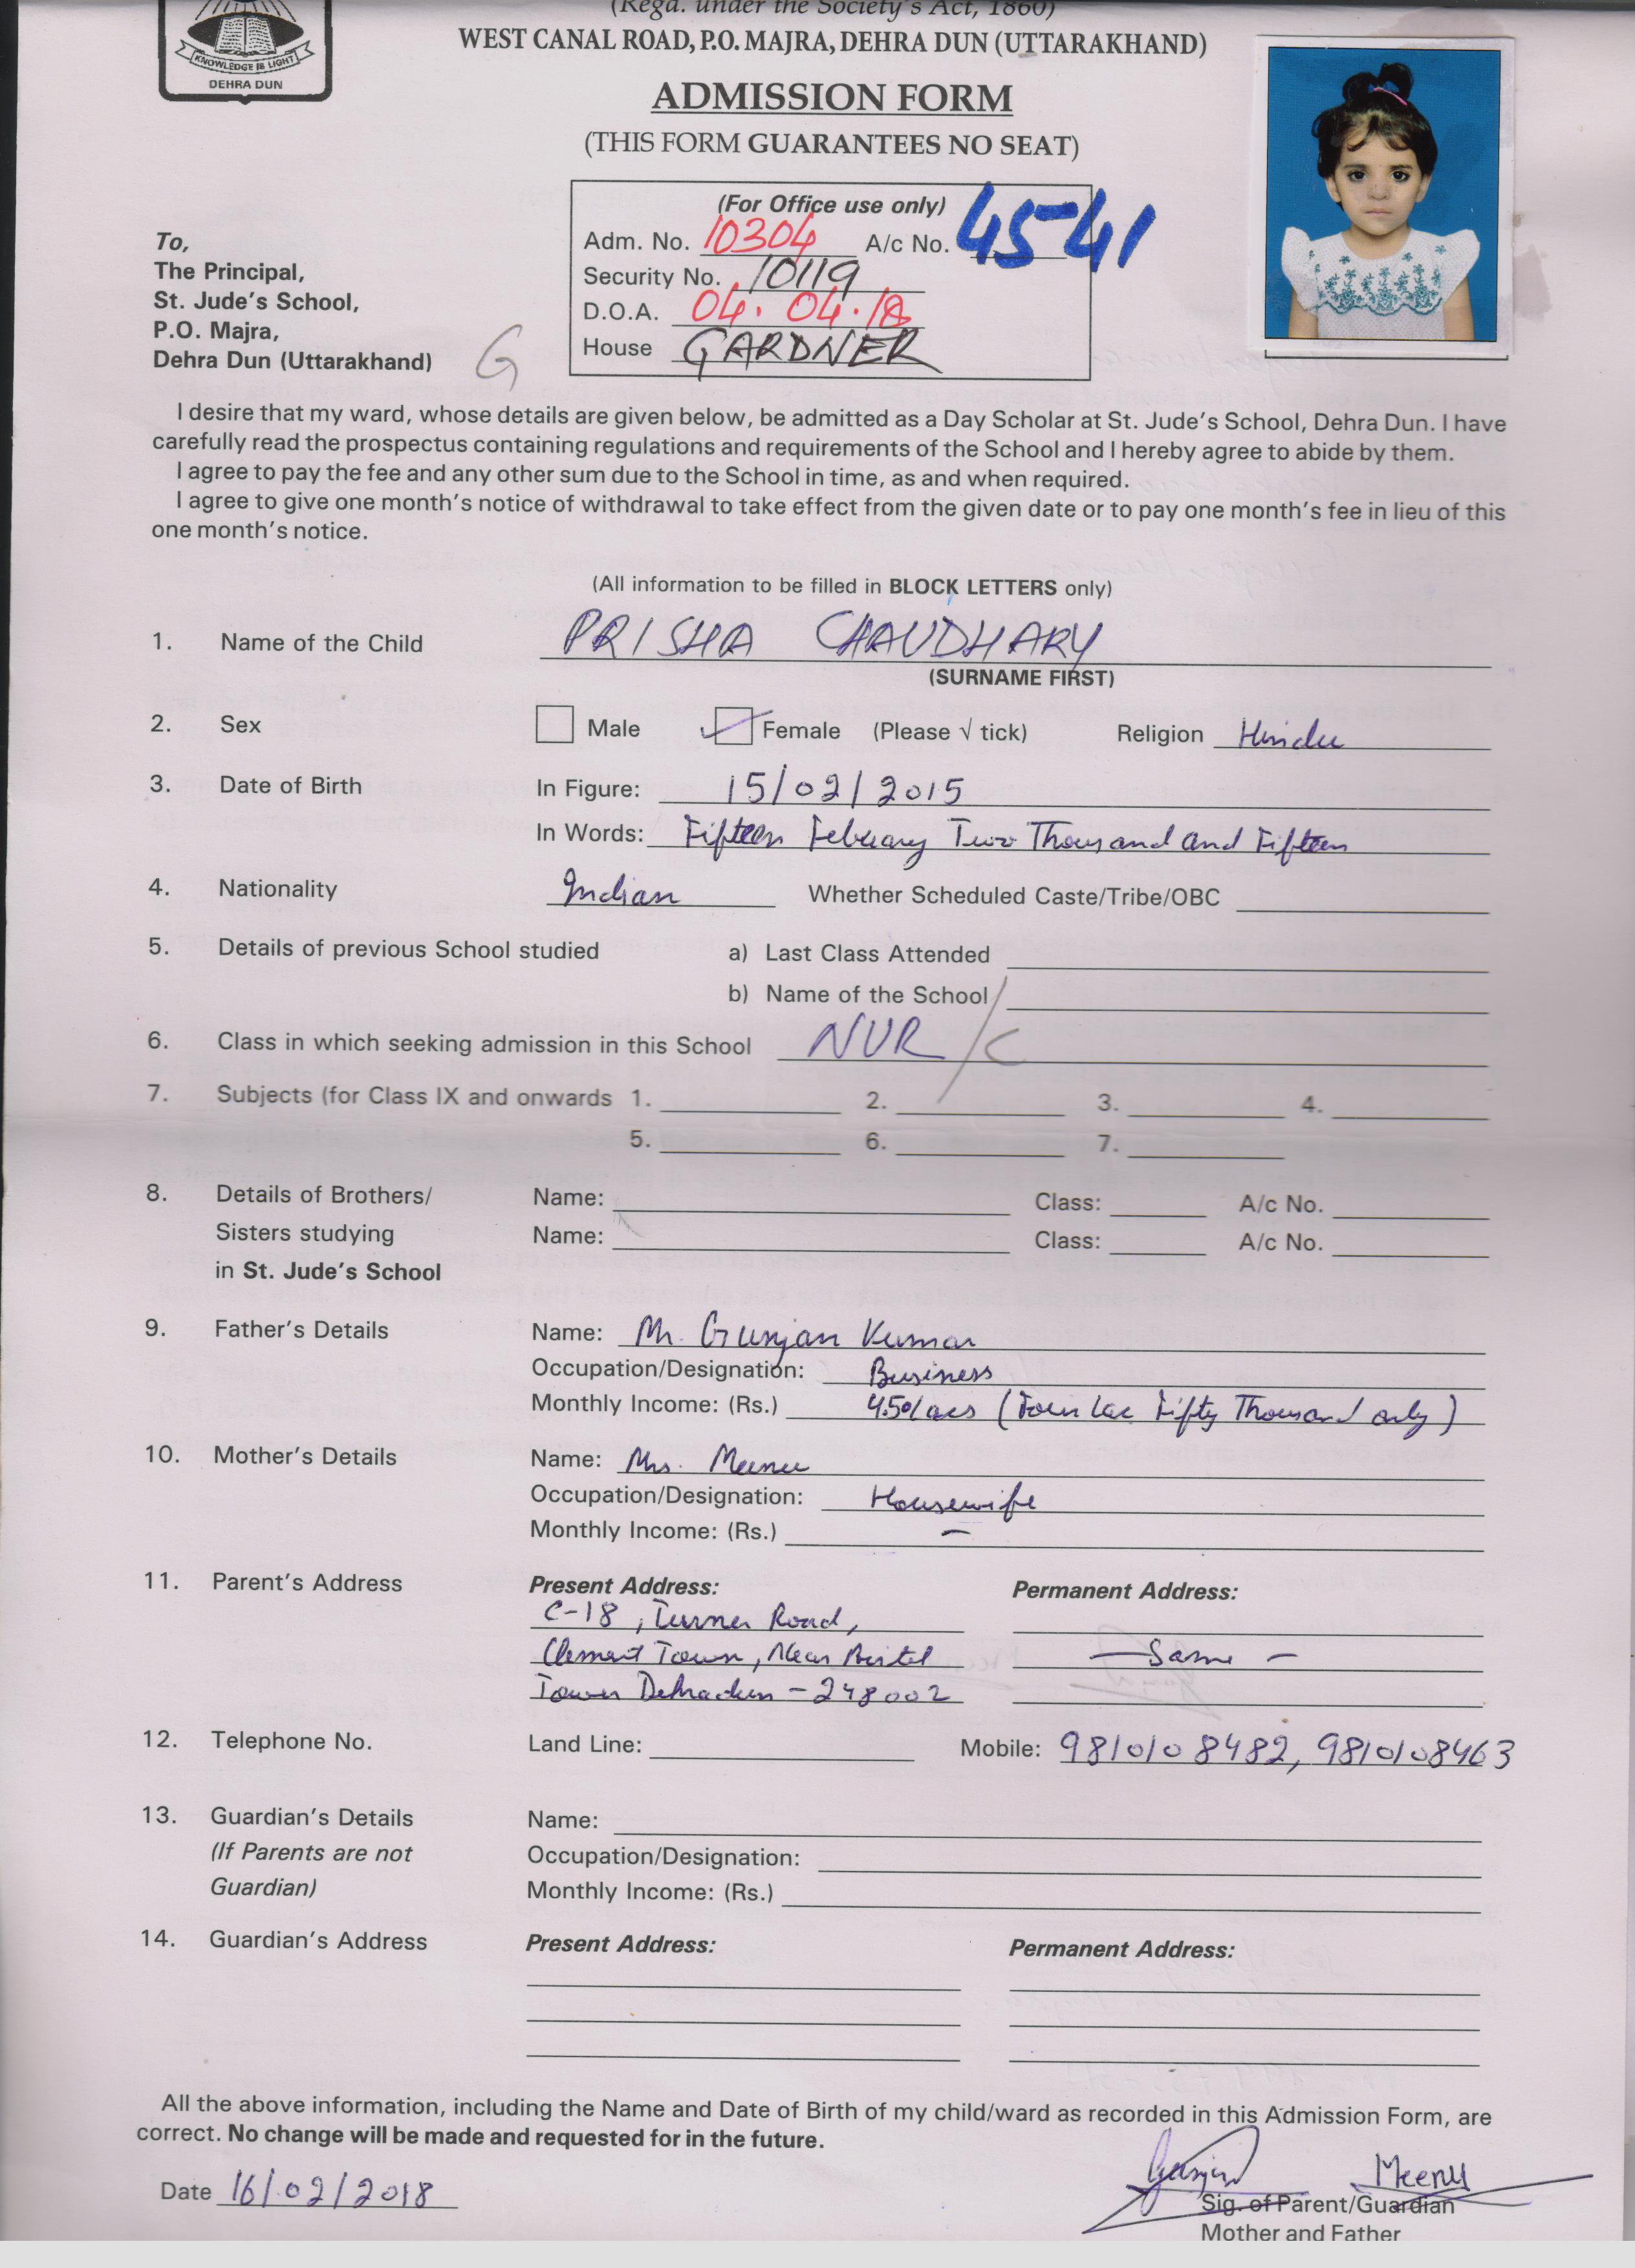 (Regd. under the Society's Act, 1860)
WEST CANAL ROAD, P.O. MAJRA, DEHRA DUN (UTTARAKHAND)
KNOWLEDGE IS LIGHT
DEHRA DUN
ADMISSION FORM
(THIS FORM GUARANTEES NO SEAT)
(For Office use only)
Adm. No. 10304 A/c No. 4541
Security No. 10119
D.O.A. 04.04.18
House GARDNER
To,
The Principal,
St. Jude's School,
P.O. Majra,
Dehra Dun (Uttarakhand) G
I desire that my ward, whose details are given below, be admitted as a Day Scholar at St. Jude's School, Dehra Dun. I have
carefully read the prospectus containing regulations and requirements of the School and I hereby agree to abide by them.
I agree to pay the fee and any other sum due to the School in time, as and when required.
I agree to give one month's notice of withdrawal to take effect from the given date or to pay one month's fee in lieu of this
one month's notice.
(All information to be filled in BLOCK LETTERS only)
1. Name of the Child PRISHA CHAUDHARY
(SURNAME FIRST)
2. Sex Male Female (Please √ tick) Religion Hindu
3. Date of Birth In Figure: 15/02/2015
In Words: Fifteen Febuary Two Thousand and Fifteen
4. Nationality Indian Whether Scheduled Caste/Tribe/OBC
5. Details of previous School studied a) Last Class Attended
b) Name of the School
6. Class in which seeking admission in this School NUR / C
7. Subjects (for Class IX and onwards 1. 2. 3. 4.
5. 6. 7.
8. Details of Brothers/ Name: Class: A/c No.
Sisters studying Name: Class: A/c No.
in St. Jude's School
9. Father's Details Name: Mr. Gunjan Kumar
Occupation/Designation: Business
Monthly Income: (Rs.) 4.50 lacs (Four Lac Fifty Thousand only)
10. Mother's Details Name: Mrs. Meenu
Occupation/Designation: Housewife
Monthly Income: (Rs.) —
11. Parent's Address Present Address: Permanent Address:
C-18, Turner Road,
Clement Town, Near Bristol — Same —
Tower Dehradun - 248002
12. Telephone No. Land Line: Mobile: 9810108482, 9810108463
13. Guardian's Details Name:
(If Parents are not Occupation/Designation:
Guardian) Monthly Income: (Rs.)
14. Guardian's Address Present Address: Permanent Address:
All the above information, including the Name and Date of Birth of my child/ward as recorded in this Admission Form, are
correct. No change will be made and requested for in the future.
Gunjan Meenu
Date 16/02/2018 Sig. of Parent/Guardian
Mother and Father